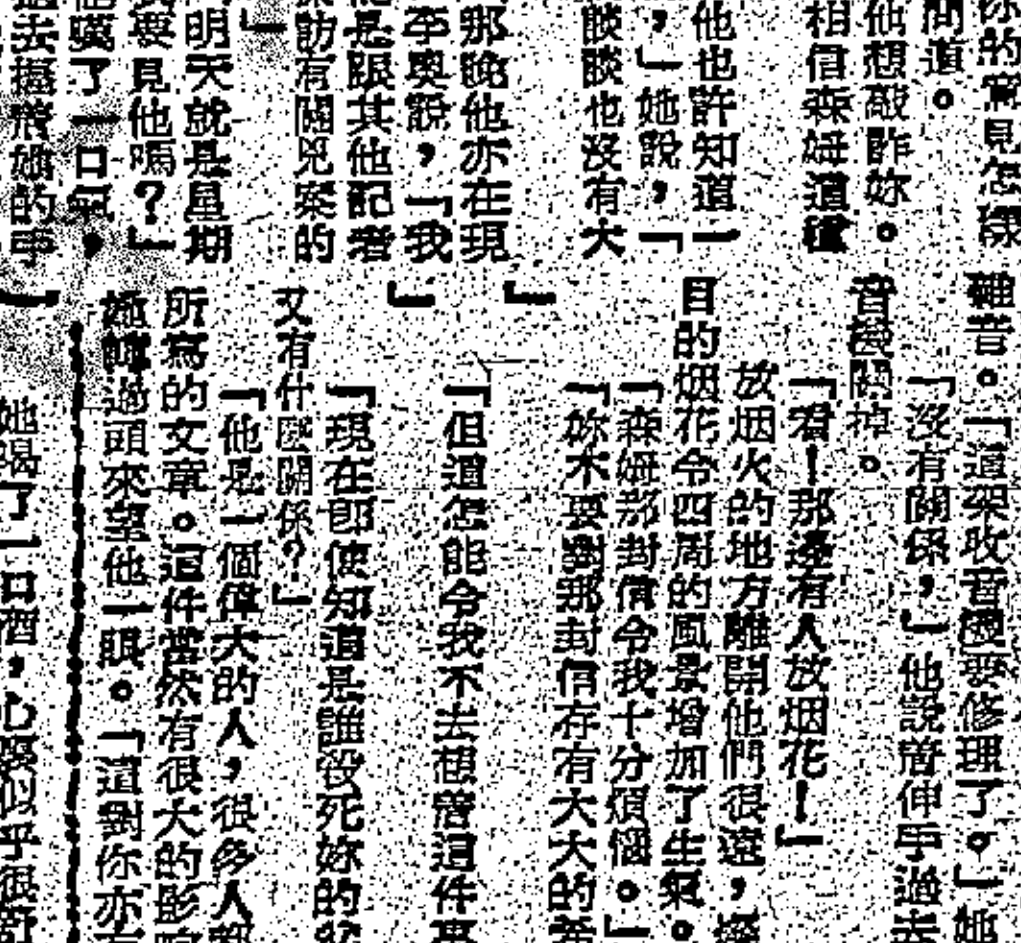 你的意見怎樣
問道。
他想敲詐妳。
相信森姆道
他也許知道一
，」她說，「
談談也沒有大
那晚他亦在現
李奧說，「我
是跟其他記者
訪有關兇案的
」
明天就是星期
要見他嗎？」
他嘆了一口氣，
過去握着她的手
雜音。「這架收音機要修理了。」她
「沒有關係，」他說着伸手過去
音機關掉。
「看！那邊有人放烟花！」
放烟火的地方離開他們很遠，
目的烟花令四周的風景增加了生氣。
「森姆那封信令我十分煩惱。」
「妳不要對那封信存有大大的希
」
「但這怎能令我不去想着這件事
」
「現在即使知道是誰殺死妳的
又有什麼關係？」
「他是一個偉大的人，很多人都
所寫的文章。這件當然有很大的影響
她轉過頭來望他一眼。「這對你亦有
」
她喝了一口酒，心裏似乎很